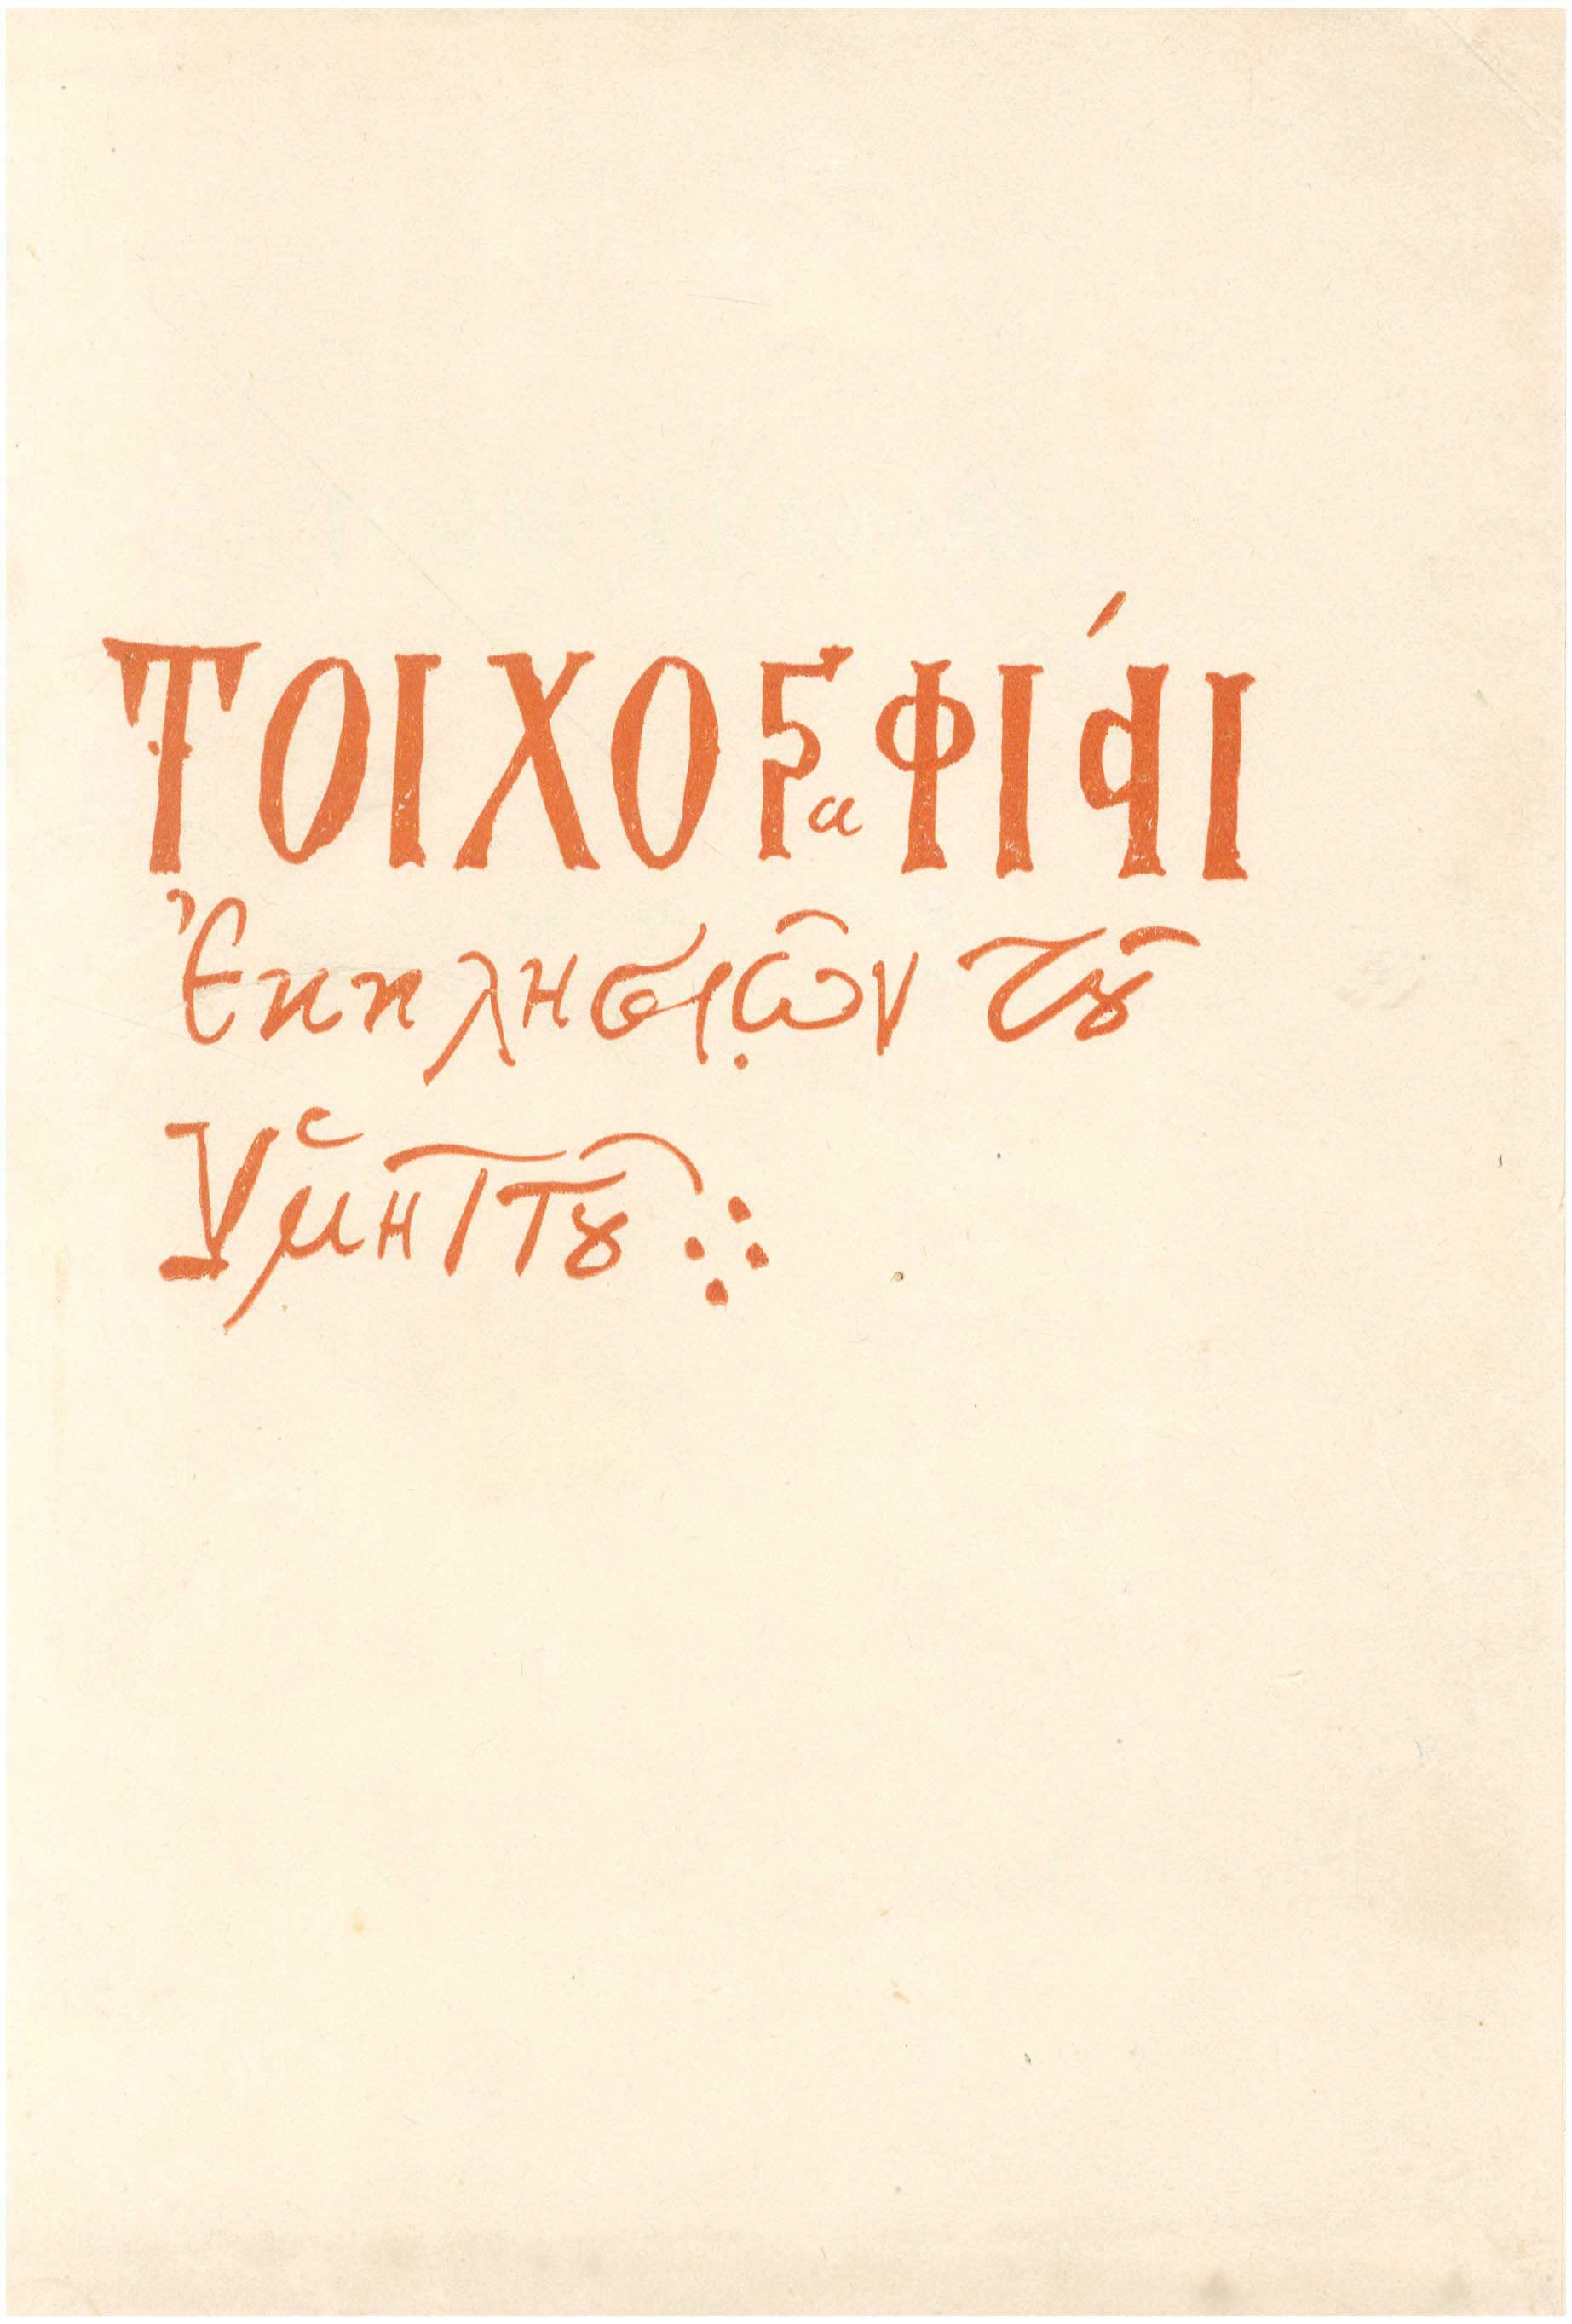 ΤΟΙΧΟΓραΦΙάΙ
Ἐκκλησιῶν τȣ͂
Ὑμηττȣ͂